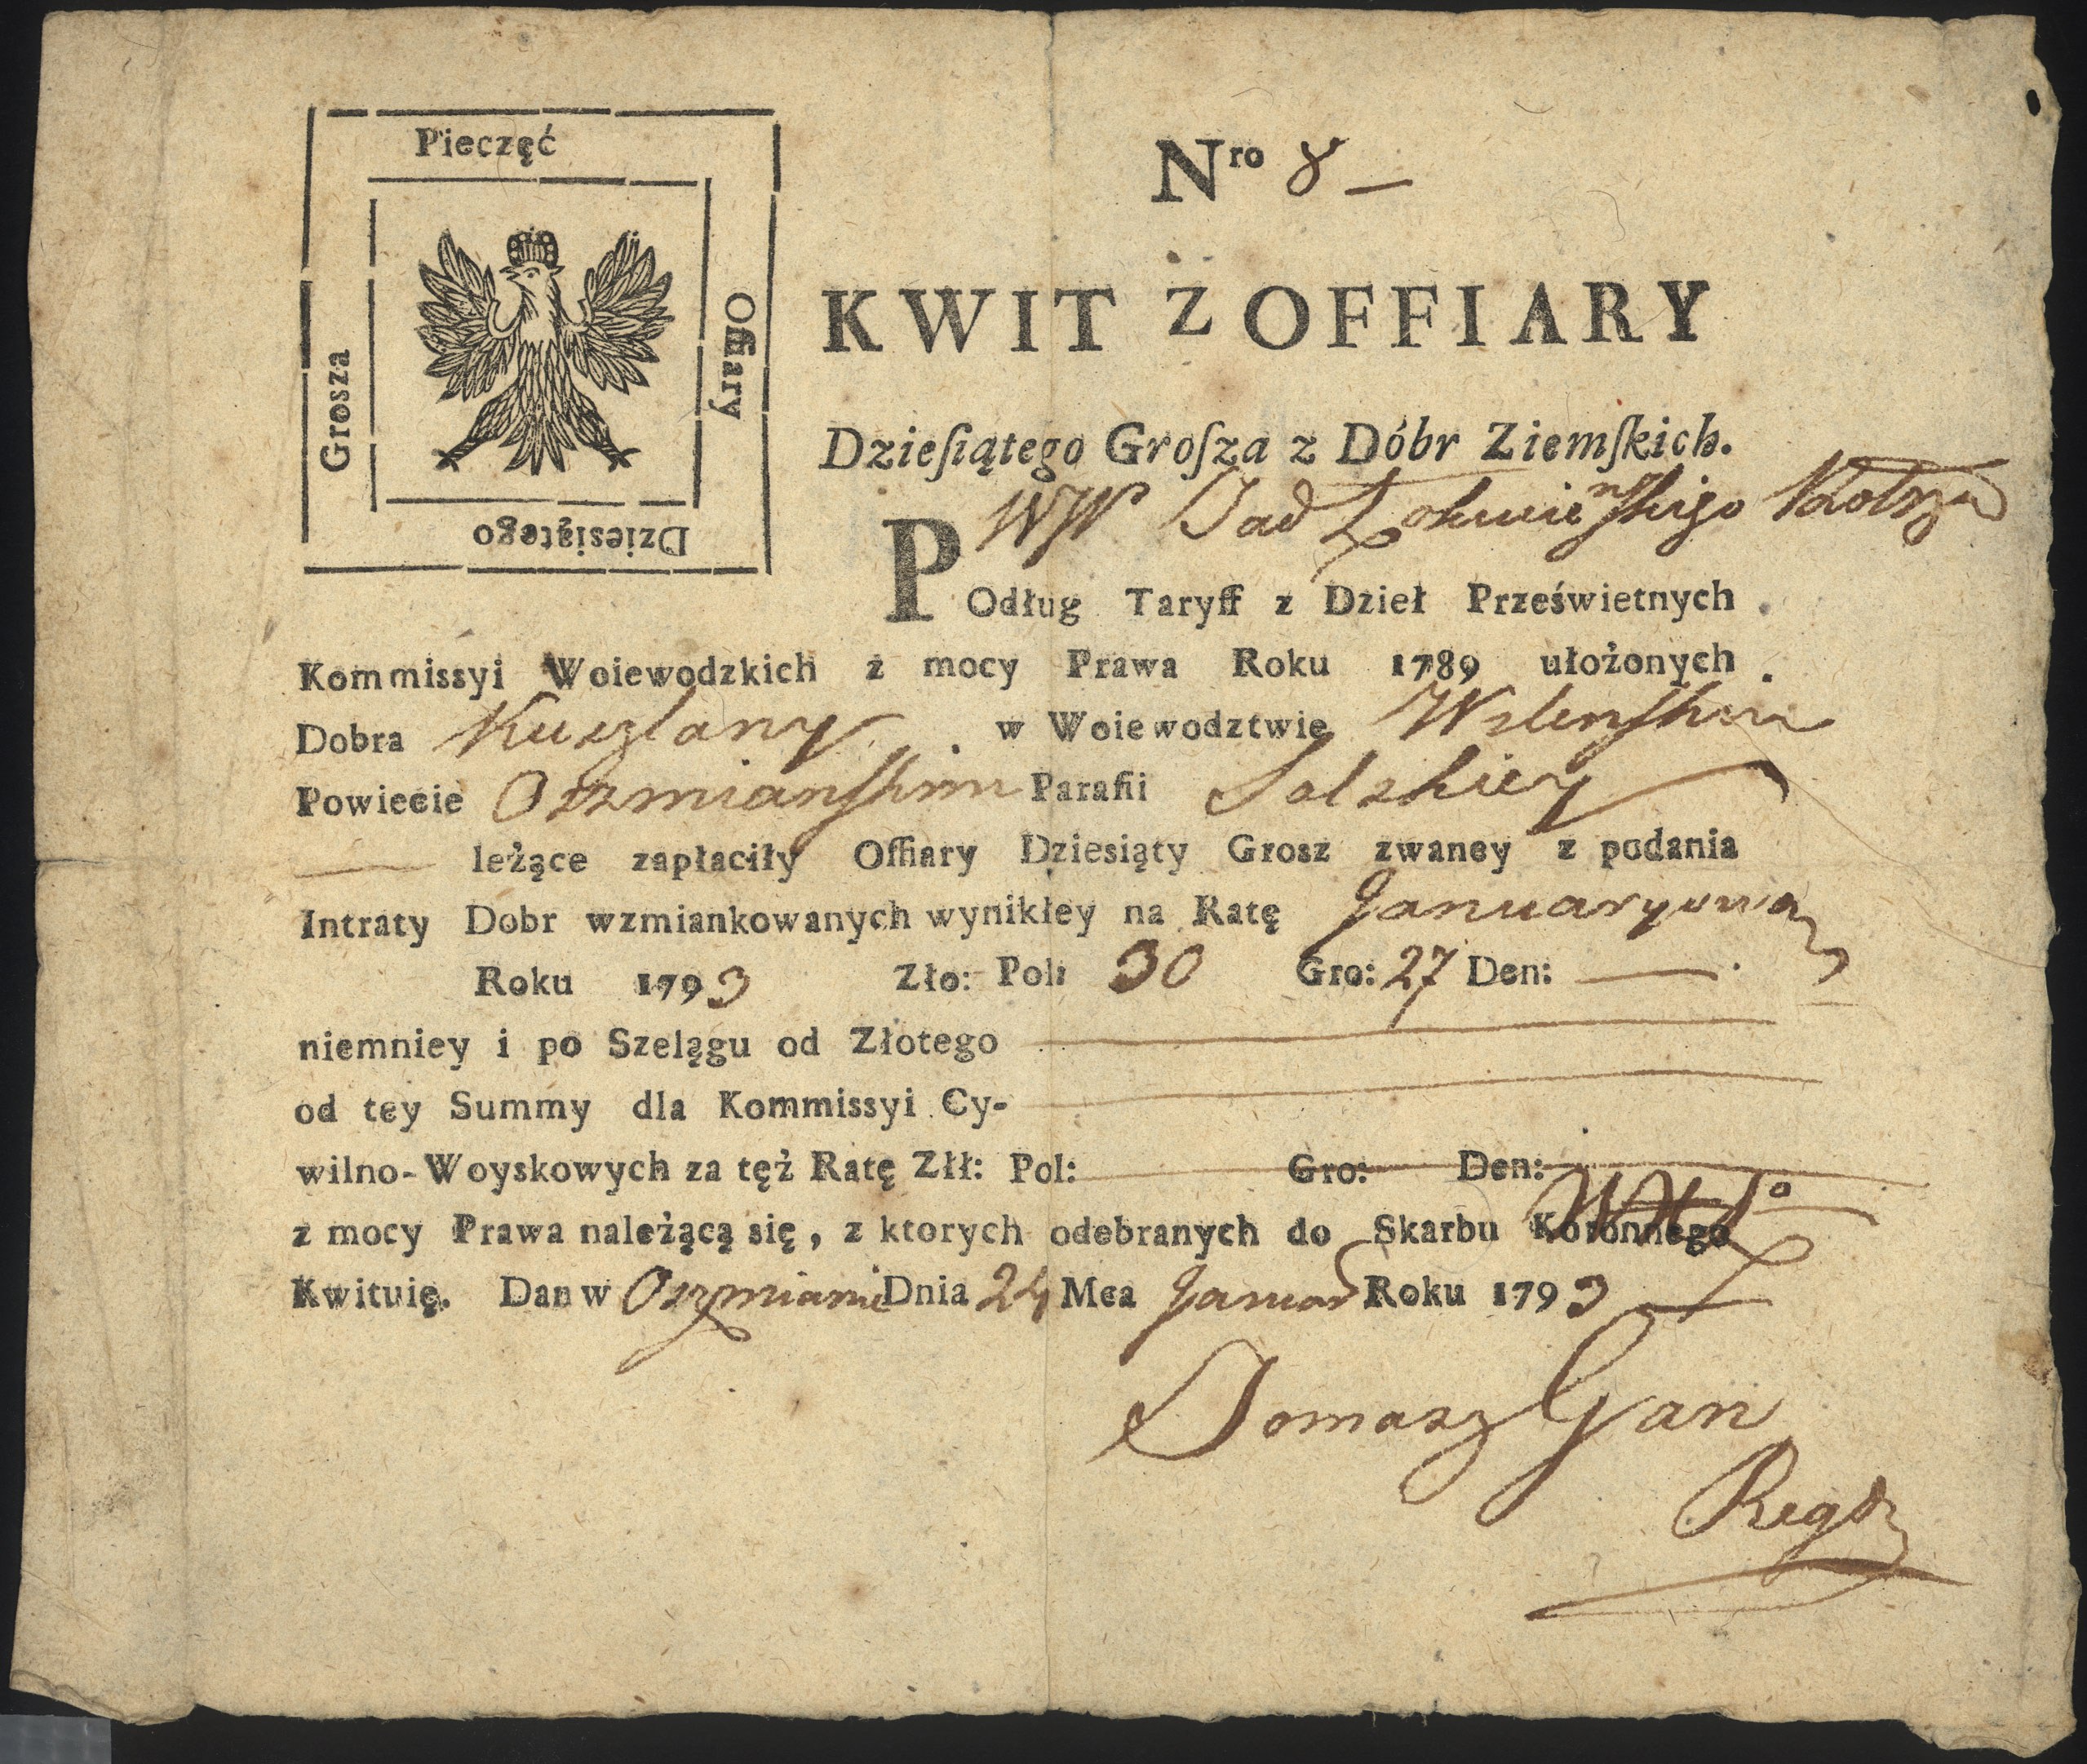 Pieczęć
Offiary
Dziesiątego
Grosza
Nro 8 —
KWIT Z OFFIARY
Dzieſiątego Groſza z Dóbr Ziemſkich.
WW Tad
POdług Taryff z Dzieł Prześwietnych
Kommissyi Woiewodzkich z mocy Prawa Roku 1789 ułożonych
Dobra Kuczlany w Woiewodztwie Wilenſkim
Powiecie Oszmianſkim Parafii Solskiey
leżące zapłaciły Offiary Dziesiąty Grosz zwaney z podania
Intraty Dobr wzmiankowanych wynikłey na Ratę Januaryową
Roku 1793 Zło: Pol: 30 Gro: 27 Den: —
niemniey i po Szelągu od Złotego
od tey Summy dla Kommissyi Cy-
wilno-Woyskowych za tęż Ratę Złł: Pol: Gro: Den:
z mocy Prawa należącą się, z ktorych odebranych do Skarbu Koronnego
Kwituię. Dan w Oszmianie Dnia 24 Mca Januar Roku 1793
Tomasz Gan